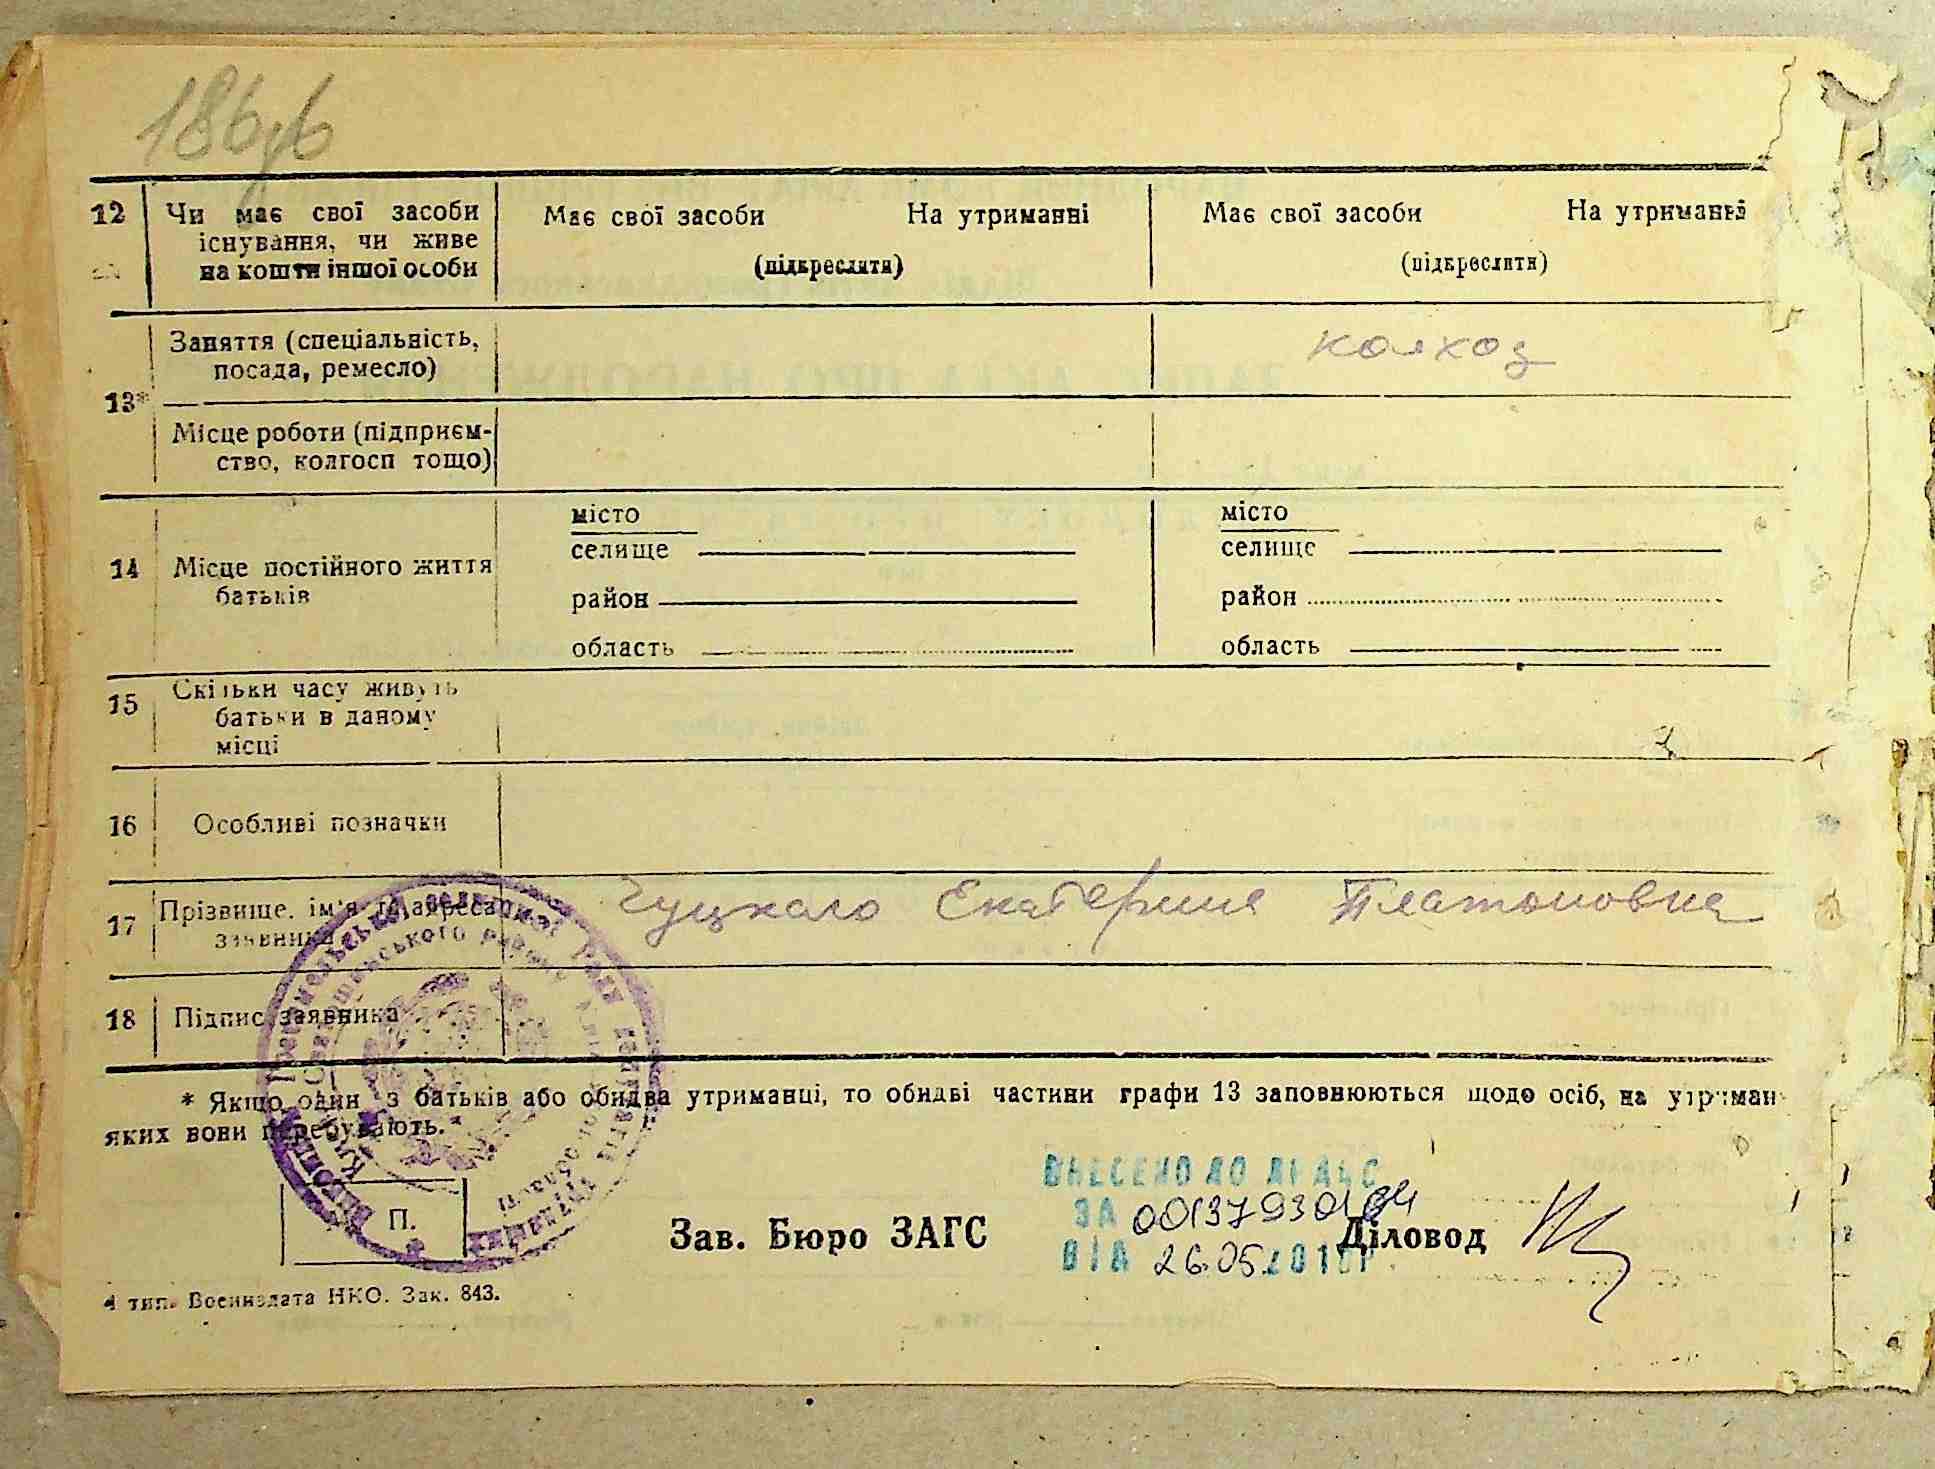 186
12
Чи має свої засоби
існування, чи живе
на кошти іншої особи
Має свої засоби На утриманні
(підкреслити)
Має свої засоби На утриманні
(підкреслити)
13*
Заняття (спеціальність,
посада, ремесло)
колхоз
Місце роботи (підприєм-
ство, колгосп тощо)
14
Місце постійного життя
батьків
місто
селище
район
область
місто
селище
район
область
15
Скільки часу живуть
батьки в даному
місці
16
Особливі позначки
17
Прізвище, ім'я та адреса
заявника
Гуцкало Екатерина Платоновна
18
Підпис заявника
* Якщо один з батьків або обидва утриманці, то обидві частини графи 13 заповнюються щодо осіб, на утриман
яких вони перебувають.
ВНЕСЕНО ДО ДРАЦС
ЗА 00137930104
ВІД 26.05.2018р
П.
Зав. Бюро ЗАГС
Діловод
4 тип. Воениздата НКО. Зак. 843.